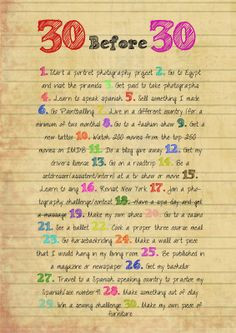 30 Before 30
1. Start a portret photography project 2. Go to Egypt
and visit the piramids 3. Get paid to take photographs
4. Learn to speak spanish 5. Sell something I made
6. Go Paintballing 7. Live in a different country (for a
minimum of two months) 8. Go to a fashion show 9. Get a
new tattoo 10. Watch 250 movies from the top 250
movies on IMDB 11. Do a blog give away 12. Get my
drivers license 13. Go on a roadtrip 14. Be a
extra at a tv show or movie 15.
Learn to sing 16. Revisit New York 17. Join a pho-
tography challenge/contest 18. Have a spa day and get
a massage 19. Make my own shoes 20. Go to a casino
21. See a ballet 22. Cook a proper three course meal
23. Go horsebackriding 24. Make a wall art piece
that I would hang in my living room 25. Be published in
a magazine or newspaper 26. Get my bachelor
27. Travel to a Spanish speaking country to practice my
Spanish(see number4) 28. Make something out of clay
29. Win a sewing challenge 30. Make my own piece of
furniture